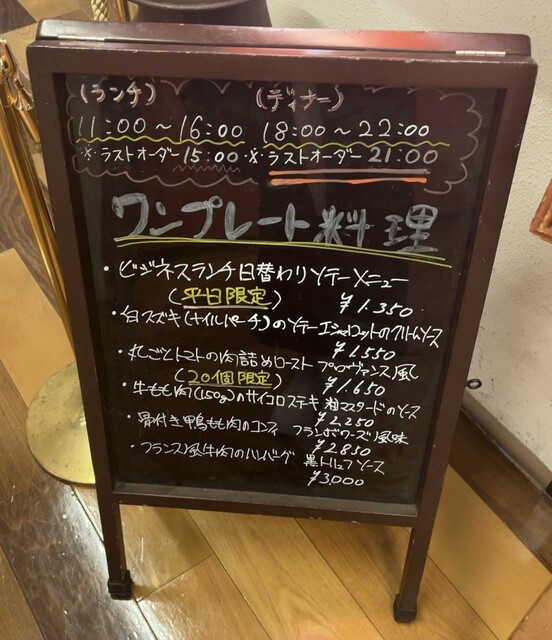 (ランチ) (ディナー)
11:00～16:00 18:00～22:00
※・ラストオーダー15:00・※・ラストオーダー21:00
ワンプレート料理
・ビジネスランチ日替わりソテーメニュー
(平日限定) ¥1.350
・白スズキ(ナイルパーチ)のソテー エシャロットのクリームソース
¥1.550
・丸ごとトマトの肉詰めロースト プロヴァンス風
(20個限定) ¥1.650
・牛もも肉(150g)のサイコロステーキ 粒マスタードのソース
¥2.250
・骨付き鴨もも肉のコンフィ フランボワーズ風味
¥2.850
・フランス風牛肉のハンバーグ 黒トリュフソース
¥3,000